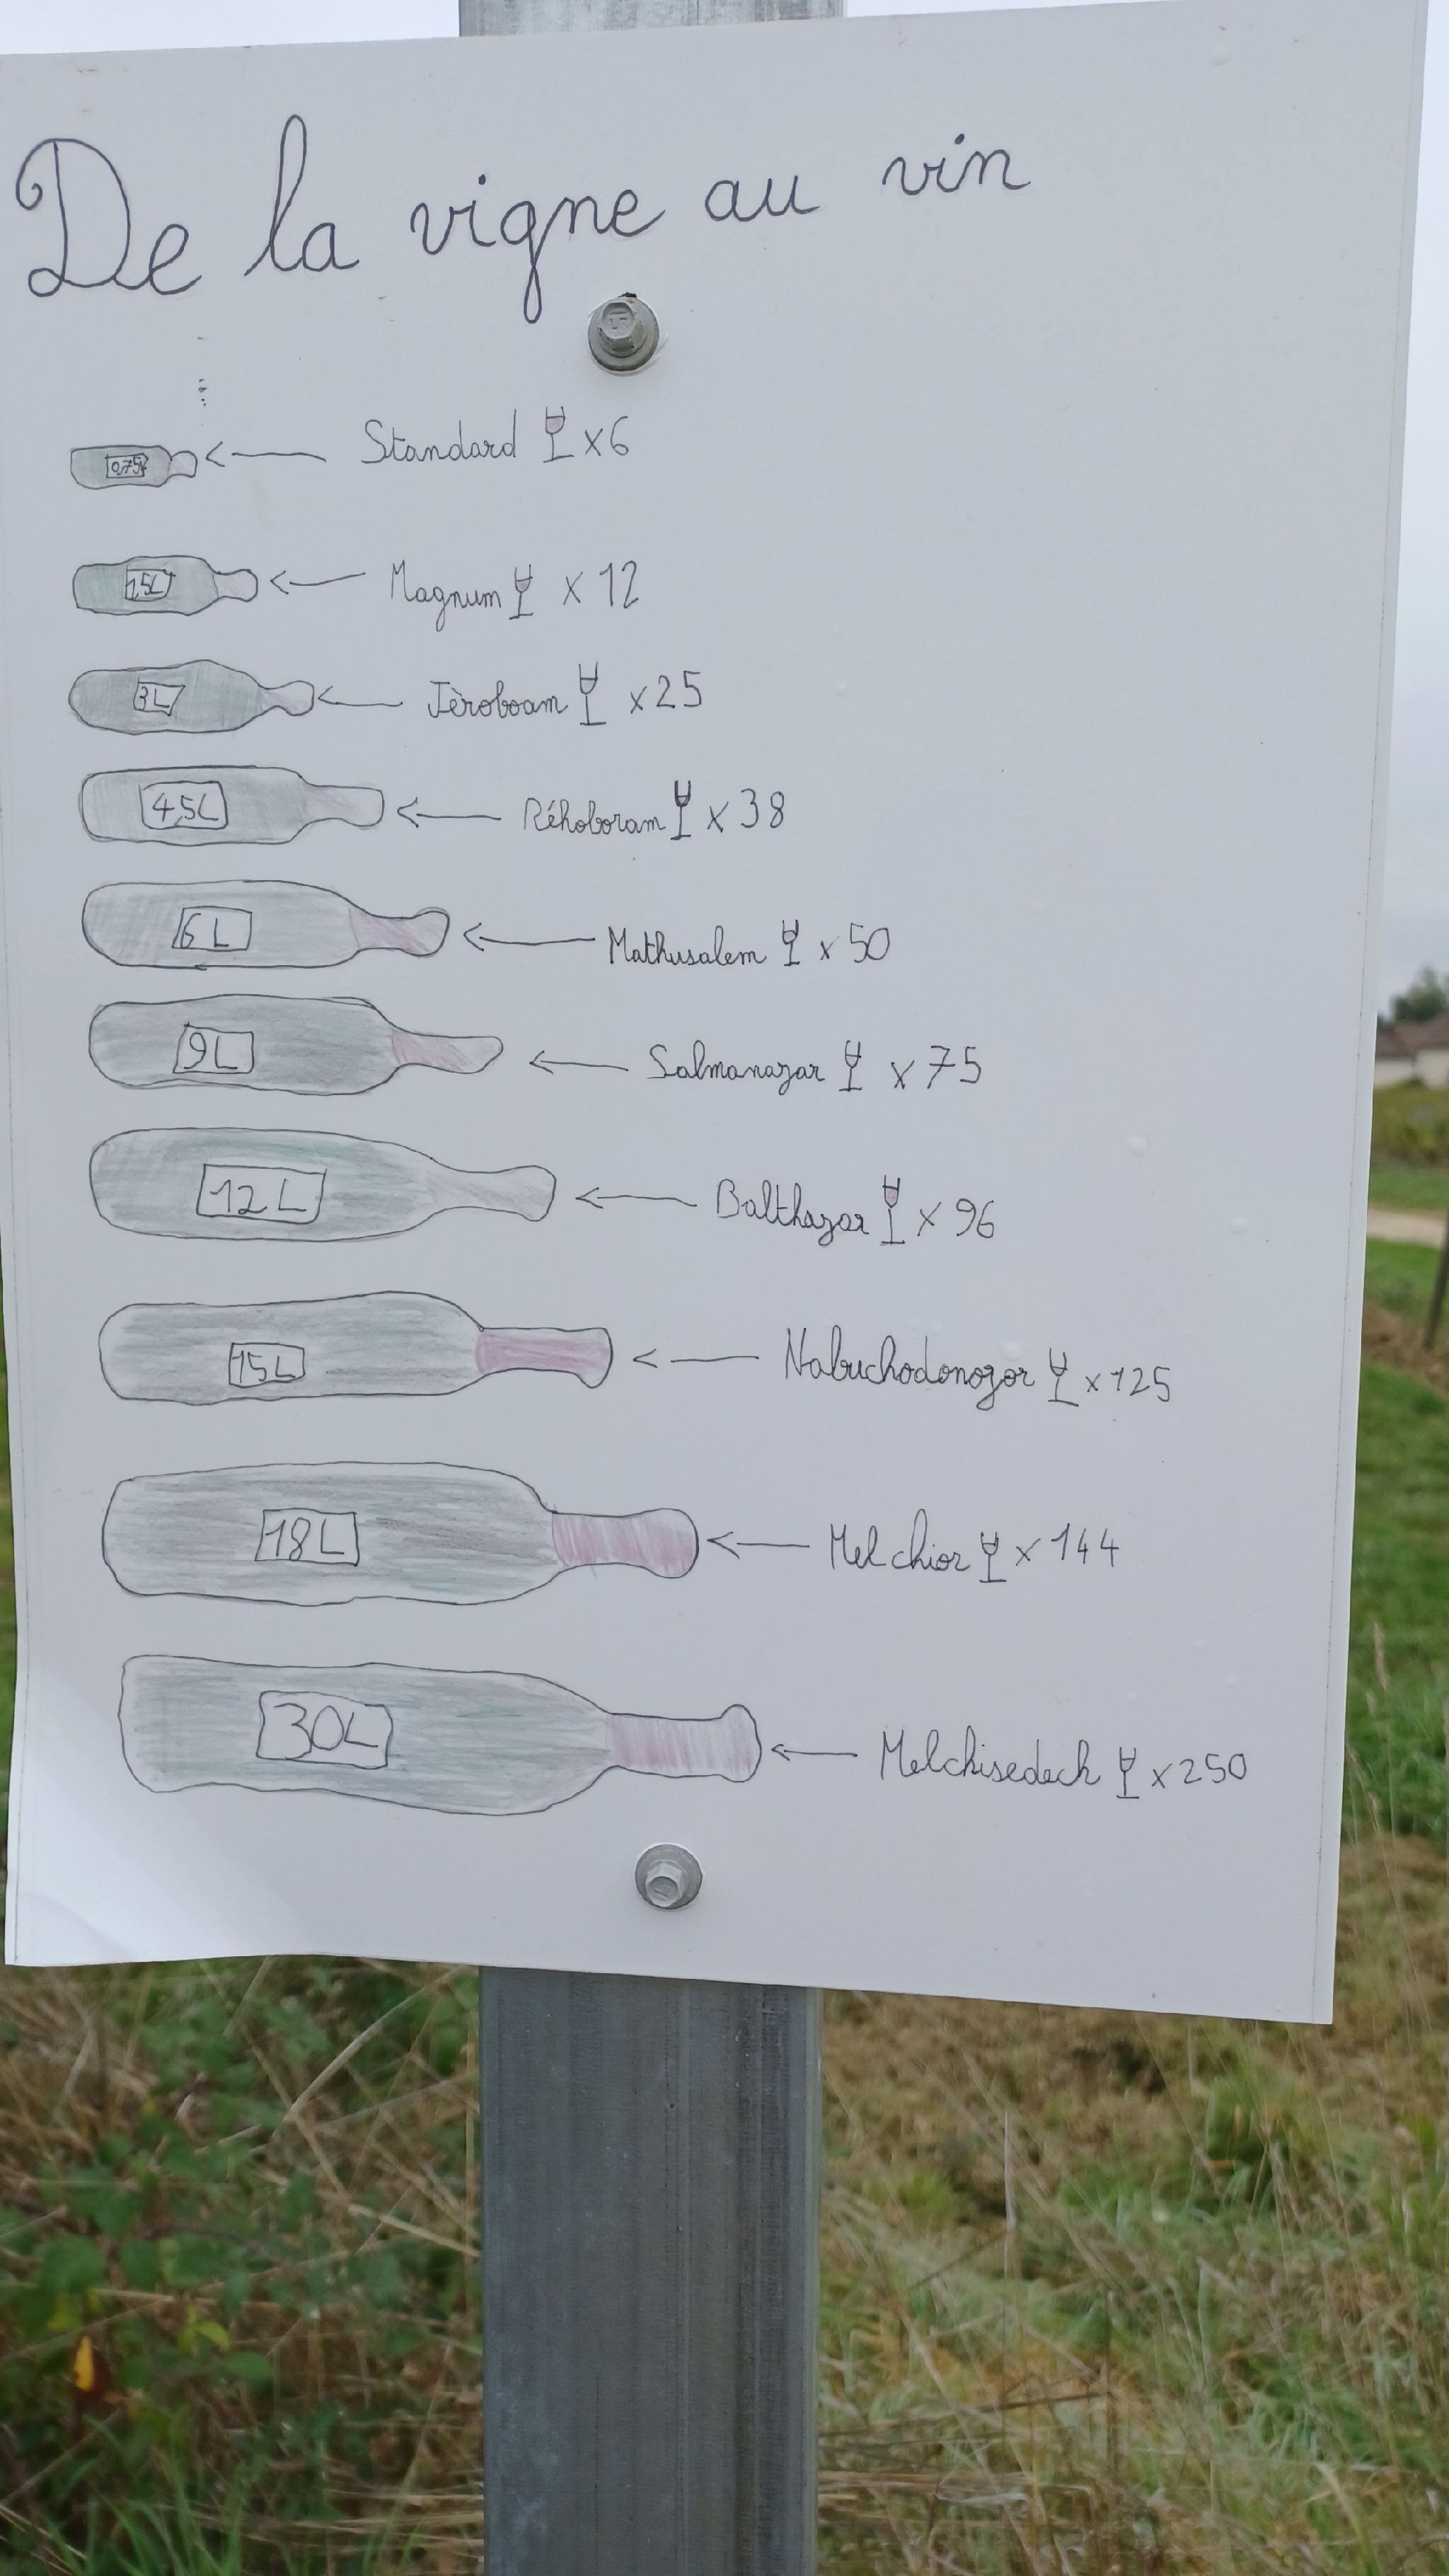 De la vigne au vin
0,75L Standard x6
1,5L Magnum x 12
3L Jèroboam x25
4,5L Réhoboram x 38
6L Mathusalem x 50
9L Salmanazar x 75
12L Balthazar x 96
15L Nabuchodonozor x 125
18L Melchior x 144
30L Melchisedech x 250